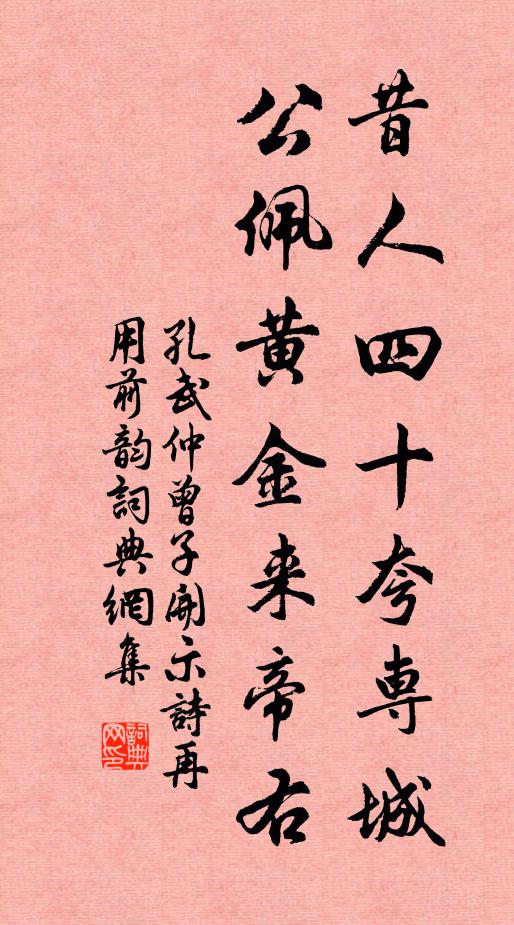 昔人四十夸專城
公佩黄金来帝右
孔武仲曾子開示詩再
用前韵詞典網集
詞典网印